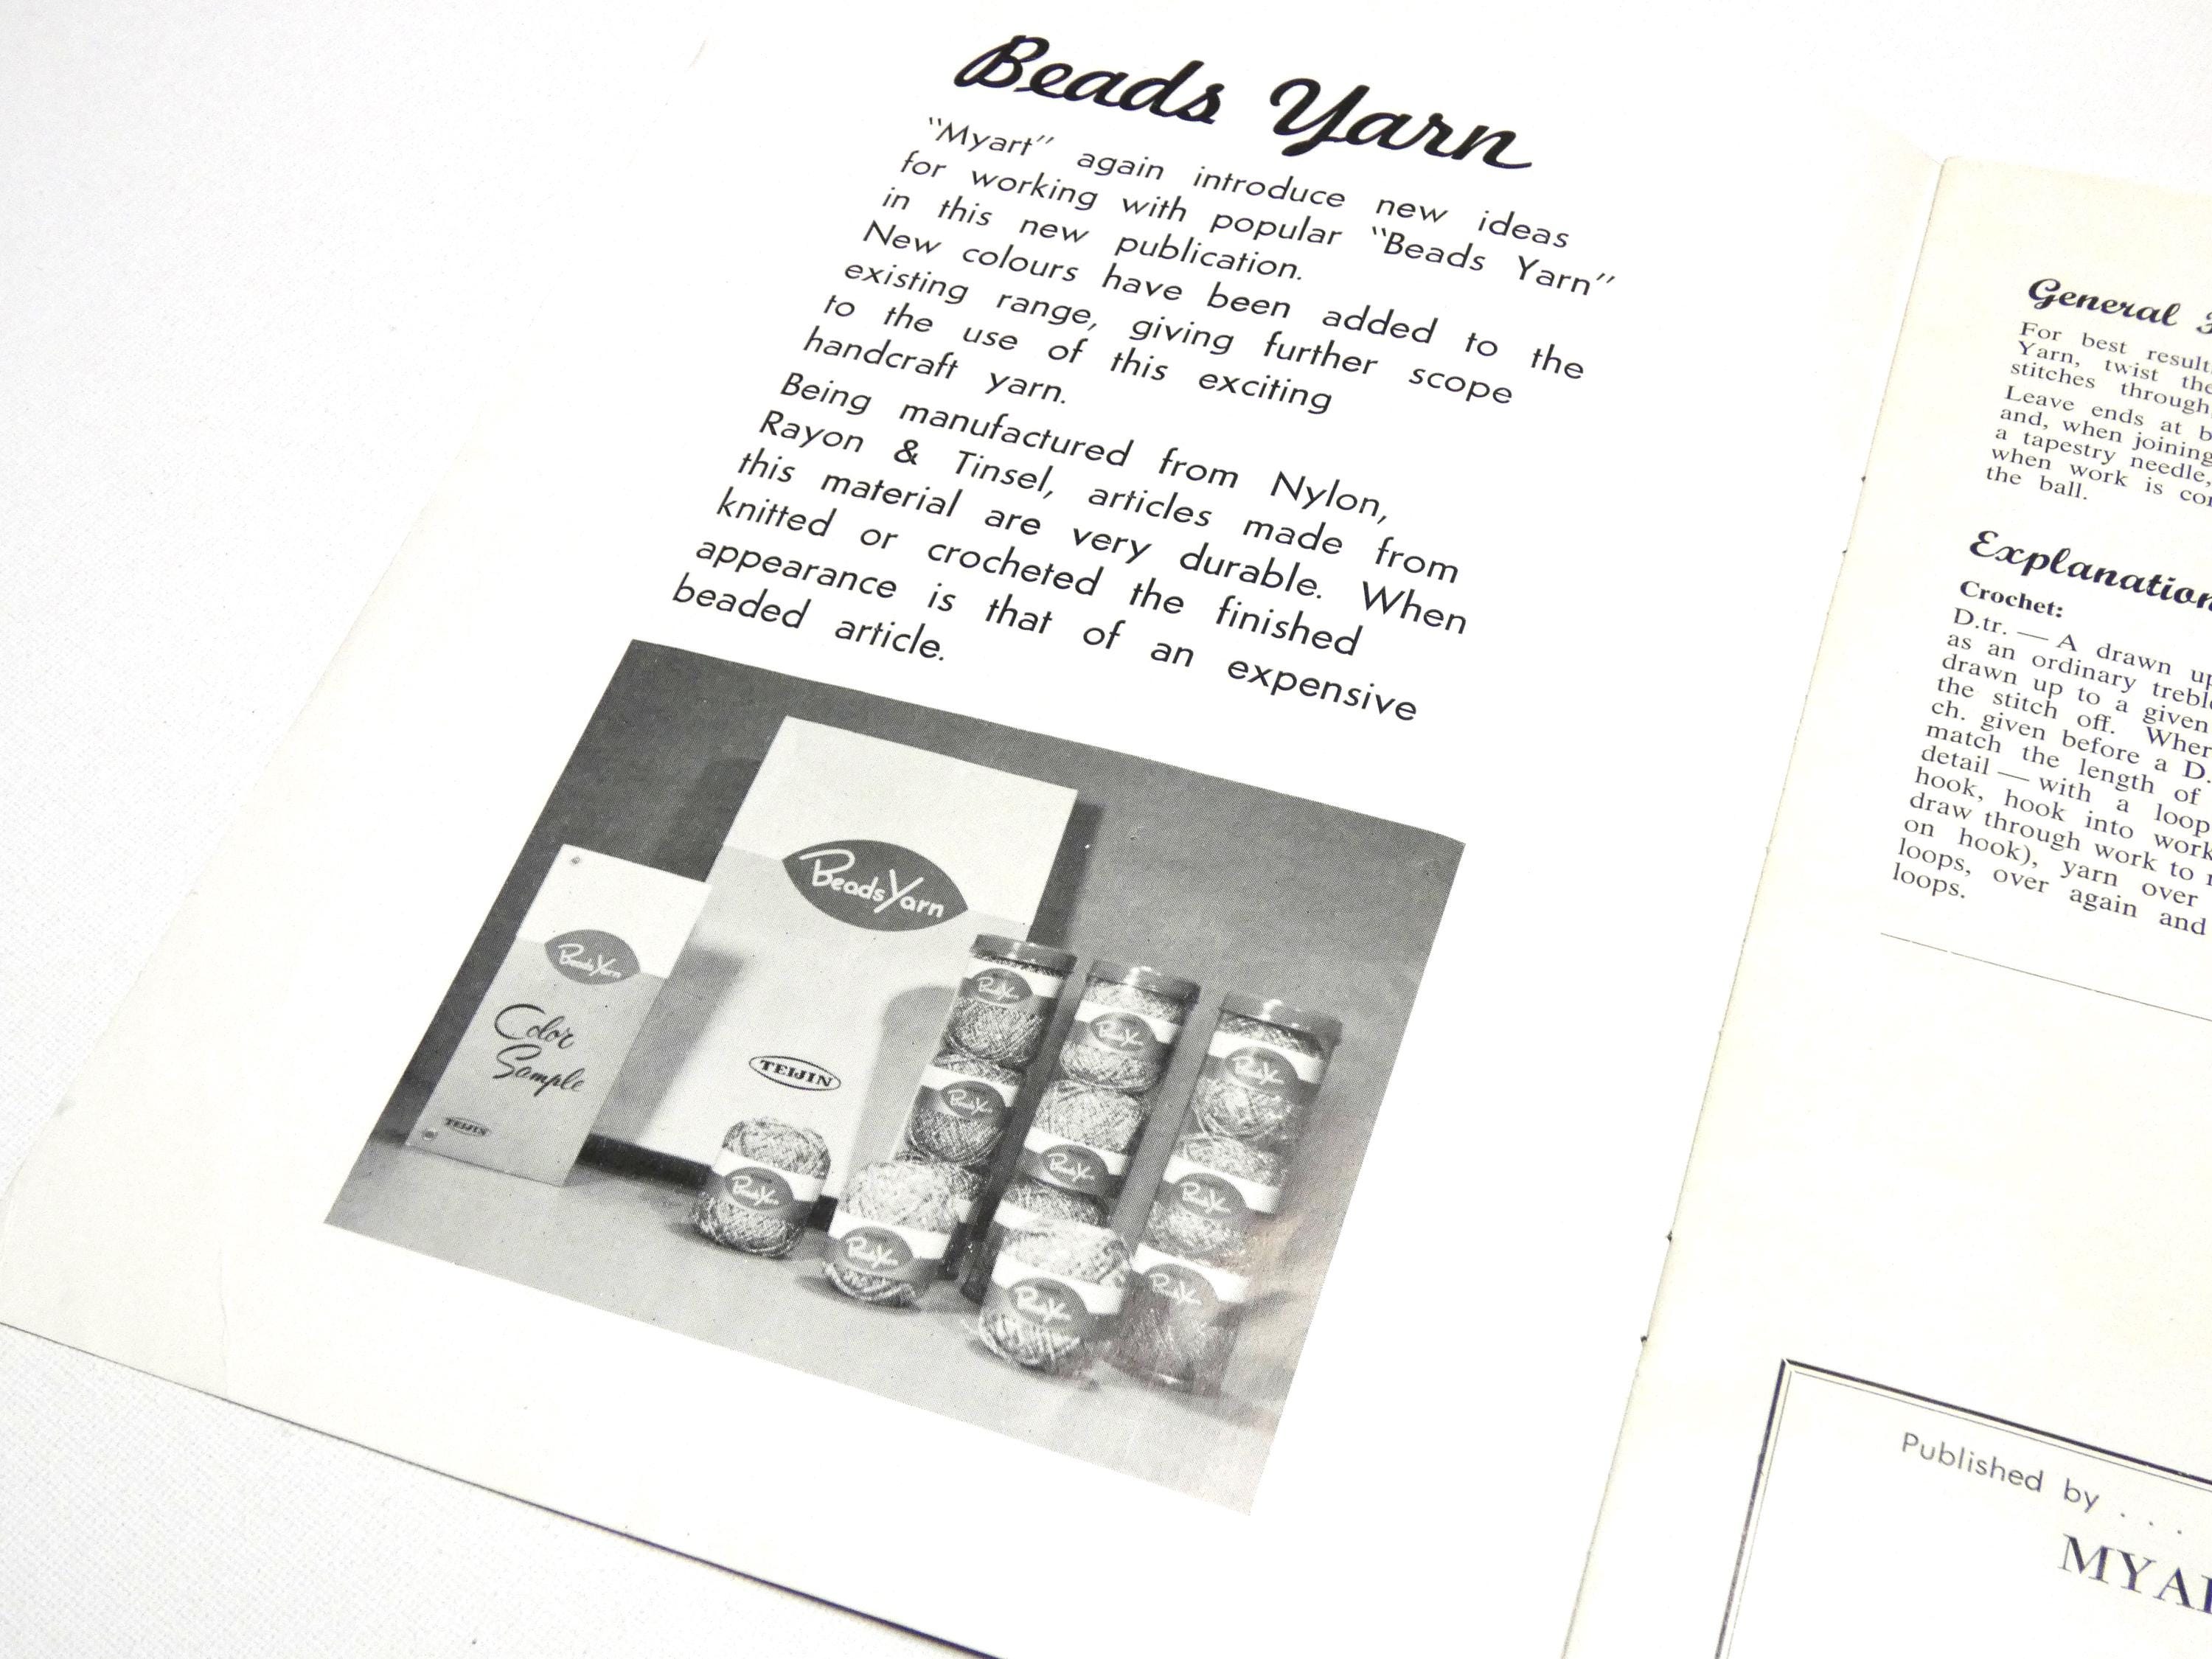 Beads Yarn
"Myart" again introduce new ideas
for working with popular "Beads Yarn"
in this new publication.
New colours have been added to the
existing range, giving further scope
to the use of this exciting
handcraft yarn.
Being manufactured from Nylon,
Rayon & Tinsel, articles made from
this material are very durable. When
knitted or crocheted the finished
appearance is that of an expensive
beaded article.
Beads Yarn
TEIJIN
Beads Yarn
Color
Sample
TEIJIN
Beads Yarn
Beads Yarn
Beads Yarn
Beads Yarn
Beads Yarn
Beads Yarn
Beads Yarn
Beads Yarn
Beads Yarn
Beads Yarn
General
For best
Yarn, twist
stitches through
Leave ends at
and, when joining
a tapestry needle,
when work is
the ball.
Explanation
Crochet:
D.tr. — A drawn
as an ordinary
drawn up to a given
the stitch off.
ch. given before a
match the length of
detail — with a loop
hook, hook into work
draw through work to
on hook), yarn over
loops, over again and
loops.
Published by . . .